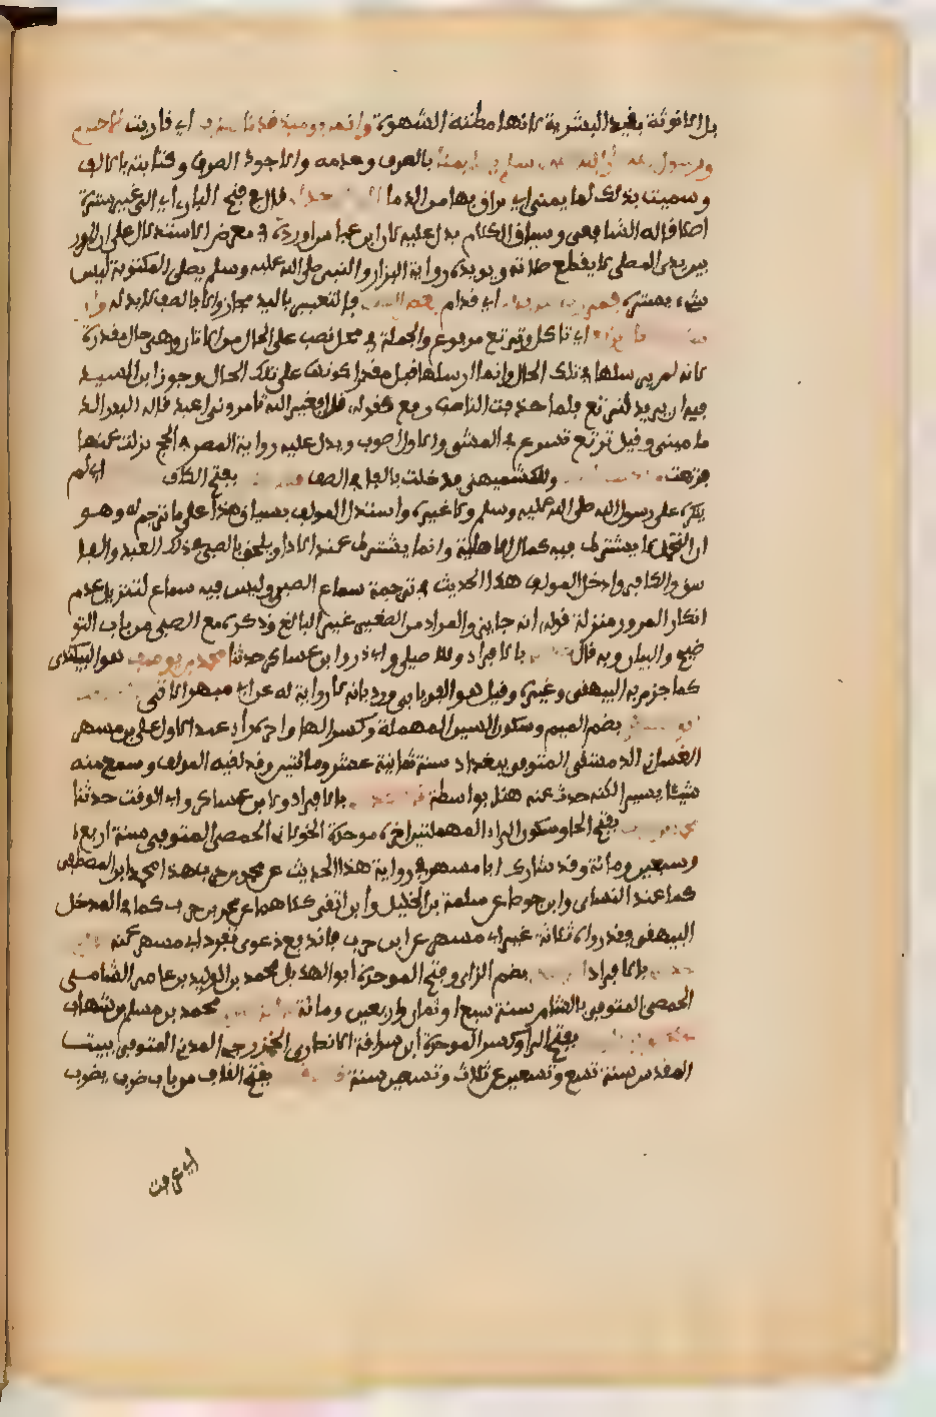 بل الانوثة بقيد البشرية لانها مظنة الشهوة وانا يومئذ قد ناهزت اي قاربت الاحتلام
ورسول الله صلى الله عليه وسلم يصلي بمنا بالصرف وعدمه والاجود الصرف وكتابته بالالف
وسميت بذلك لما يمنى اي يراق بها من الدما الى غير جدار قال في فتح الباري اي الى غير سترة
اصلا قاله الشافعي وسياق الكلام يدل عليه لان ابن عباس اورده في معرض الاستدلال على ان المرور
بين يدي المصلي لا يقطع صلاته ويويده رواية البزار والنبي صلى الله عليه وسلم يصلي المكتوبة ليس
شيء يستره فمررت بين يدي اي قدام بعض الصف فالتعبير باليد مجاز والا فالصف لا يد له وارسلت
الاتان ترتع اي تاكل وترتع مرفوع والجملة في محل نصب على الحال من الاتان وهي حال مقدرة
لانه لم يرسلها في تلك الحال وانما ارسلها قبل مقدرا كونها على تلك الحال وجوز ابن السيد
فيه ان يريد لترتع فلما حذفت الناصب رفع كقوله قل افغير الله تامروني اعبد قاله البدر الد
ماميني وقيل ترتع تسرع في المشي والاول اصوب ويدل عليه رواية المصنف في الحج نزلت عنها
فرتعت ودخلت وللكشميهني فدخلت بالفاء في الصف فلم ينكر بفتح الكاف اي لم
ينكره علي رسول الله صلى الله عليه وسلم ولا غيره واستدل المولف بسياق هذا على ما ترجم له وهو
ان التحمل لا يشترط فيه كمال الاهلية وانما يشترط عند الاداء ويلحق بالصبي في ذلك العبد والفا
سق والكافر وادخل المولف هذا الحديث في ترجمة سماع الصبي وليس فيه سماع لتنزيل عدم
انكار المرور منزلة قوله انه جايز والمراد من الصغير غير البالغ وذكره مع الصبي من باب التو
ضيح والبيان وبه قال حدثني بالافراد وللاصيلي وابي ذر وابن عساكر حدثنا محمد بن يوسف هو البيكندي
كما جزم به البيهقي وغيره وقيل هو الفريابي ورد بانه لا رواية له عن ابي مسهر الاتي قال حدثنا
ابو مسهر بضم الميم وسكون السين المهملة وكسر الهاء واخره راء عبد الاعلى بن مسهر
الغساني الدمشقي المتوفى ببغداد سنة ثمانية عشر ومائتين وقد لقيه المولف وسمع منه
شيئا يسيرا لكنه حدث عنه هنا بواسطة قال حدثني بالافراد ولابن عساكر وابي الوقت حدثنا
محمد بن حرب بفتح الحاء وسكون الراء المهملتين اخره موحدة الخولاني الحمصي المتوفى سنة اربع
وتسعين ومائة وقد شارك ابا مسهر في رواية هذا الحديث عن محمد بن حرب هذا محمد ابن المصطفى
كما عند النسائي وابن جوصا عن سلمة بن الخليل وابن التقي كلاهما عن محمد بن حرب كما في المدخل
للبيهقي فقد رواه ثلاثة غير ابي مسهر عن ابن حرب فاندفع دعوى تفرد ابي مسهر عنه قال
حدثني بالافراد الزبيدي بضم الزاي وفتح الموحدة ابو الهذيل محمد بن الوليد بن عامر الشامي
الحمصي المتوفى بالشام سنة سبع او ثمان واربعين ومائة عن الزهري محمد بن مسلم بن شهاب
عن محمود بن الربيع بفتح الراء وكسر الموحدة ابن سراقة الانصاري الخزرجي المدني المتوفى ببيت
المقدس سنة تسع وتسعين عن ثلاث وتسعين سنة قال عقلت بفتح القاف من باب ضرب يضرب
اي عرفت